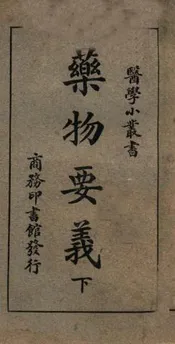 醫學小叢書
藥物要義
下
商務印書館發行